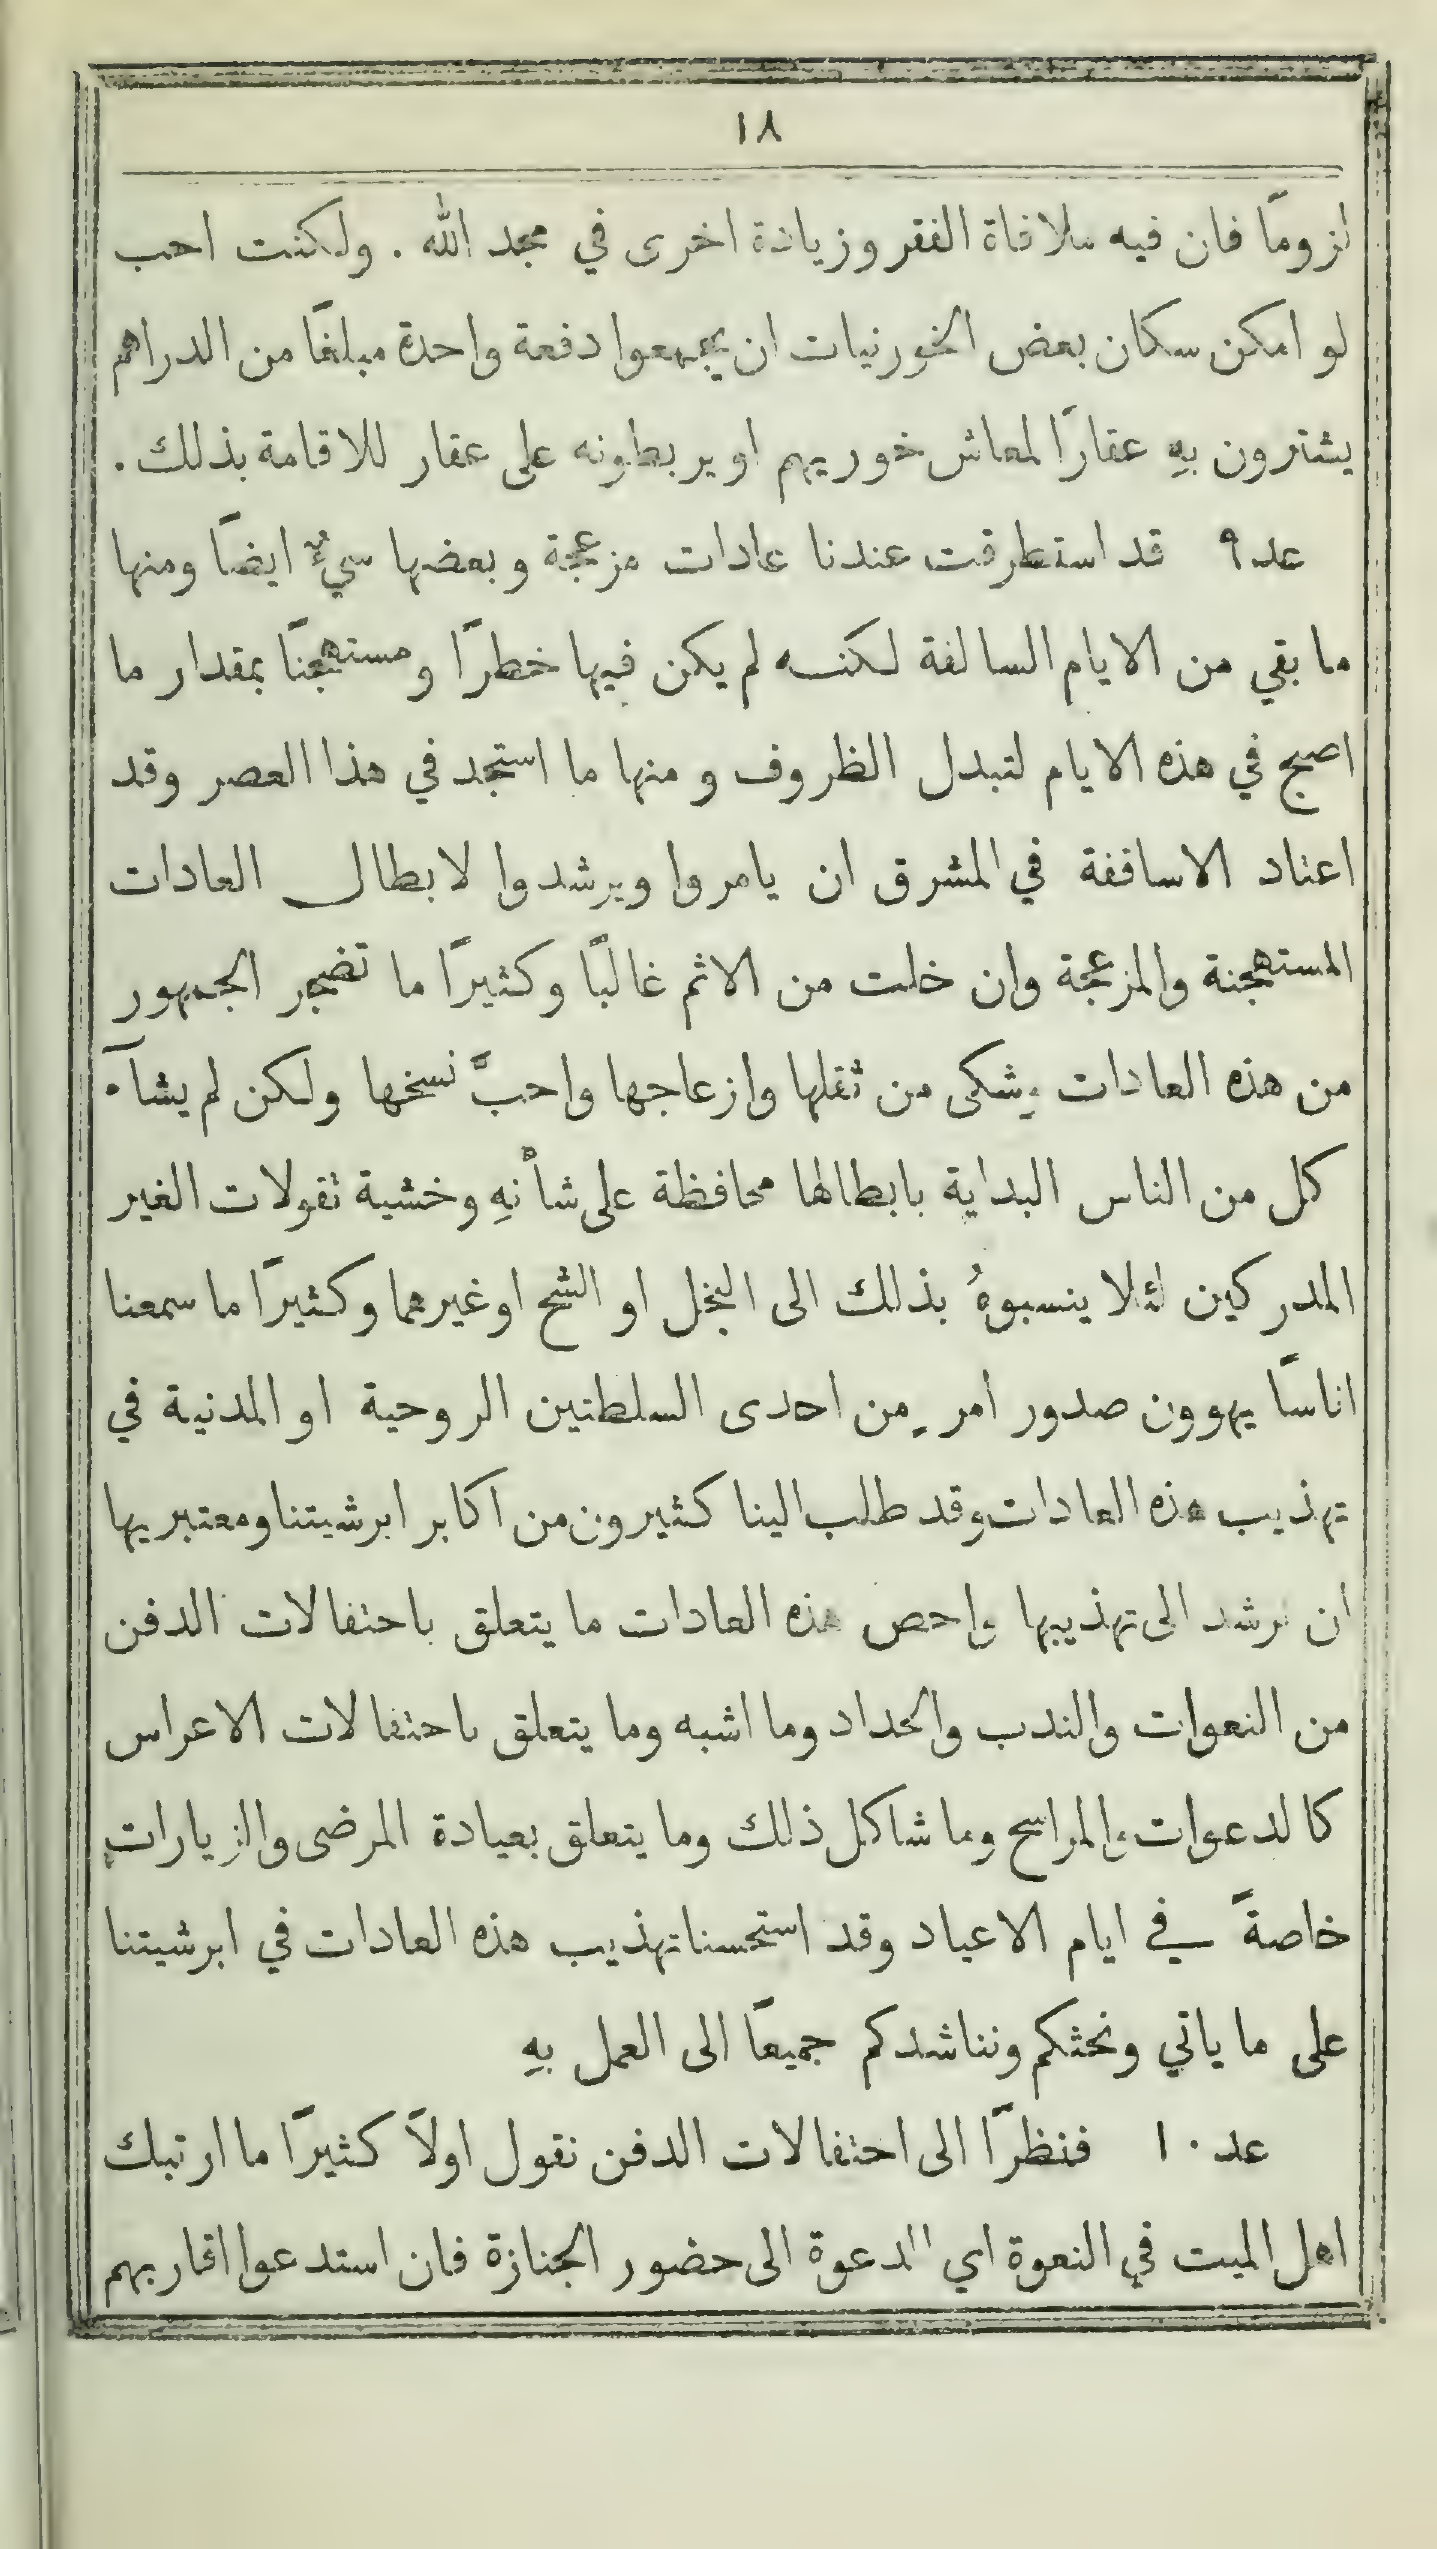 ١٨
لزومًا فان فيه ملافاة الفقر وزيادة اخرى في مجد الله . ولكنت احب
لو امكن سكان بعض الخورنيات ان يجمعوا دفعة واحدة مبلغًا من الدراهم
يشترون بهِ عقارًا لمعاش خوريهم او يربطونه على عقار للاقامة بذلك .
عد ٩ قد استطرقت عندنا عادات مزعجة وبعضها سيءٌ ايضًا ومنها
ما بقي من الايام السالفة لكنه لم يكن فيها خطرًا ومستهجنًا بمقدار ما
اصبح في هذه الايام لتبدل الظروف ومنها ما استجد في هذا العصر وقد
اعتاد الاساقفة في المشرق ان يامروا ويرشدوا لابطال العادات
المستهجنة والمزعجة وان خلت من الاثم غالبًا وكثيرًا ما تضجر الجمهور
من هذه العادات وشكى من ثقلها وازعاجها واحبَّ نسخها ولكن لم يشآء
كل من الناس البداية بابطالها محافظة على شأْنهِ وخشية تقولات الغير
المدركين لئلا ينسبوهُ بذلك الى البخل او الشح او غيرهما وكثيرًا ما سمعنا
اناسًا يهوون صدور امرٍ من احدى السلطتين الروحية او المدنية في
تهذيب هذه العادات وقد طلب الينا كثيرون من اكابر ابرشيتنا ومعتبريها
ان نرشد الى تهذيبها واخص هذه العادات ما يتعلق باحتفالات الدفن
من النعوات والندب والحداد وما اشبه وما يتعلق باحتفالات الاعراس
كالدعوات والمراسح وما شاكل ذلك وما يتعلق بعيادة المرضى والزيارات
خاصةً في ايام الاعياد وقد استحسنا تهذيب هذه العادات في ابرشيتنا
على ما ياتي ونحثكم ونناشدكم جميعًا الى العمل بهِ
عد ١٠ فنظرًا الى احتفالات الدفن نقول اولاً كثيرًا ما ارتبك
اهل الميت في النعوة اي الدعوة الى حضور الجنازة فان استدعوا اقاربهم